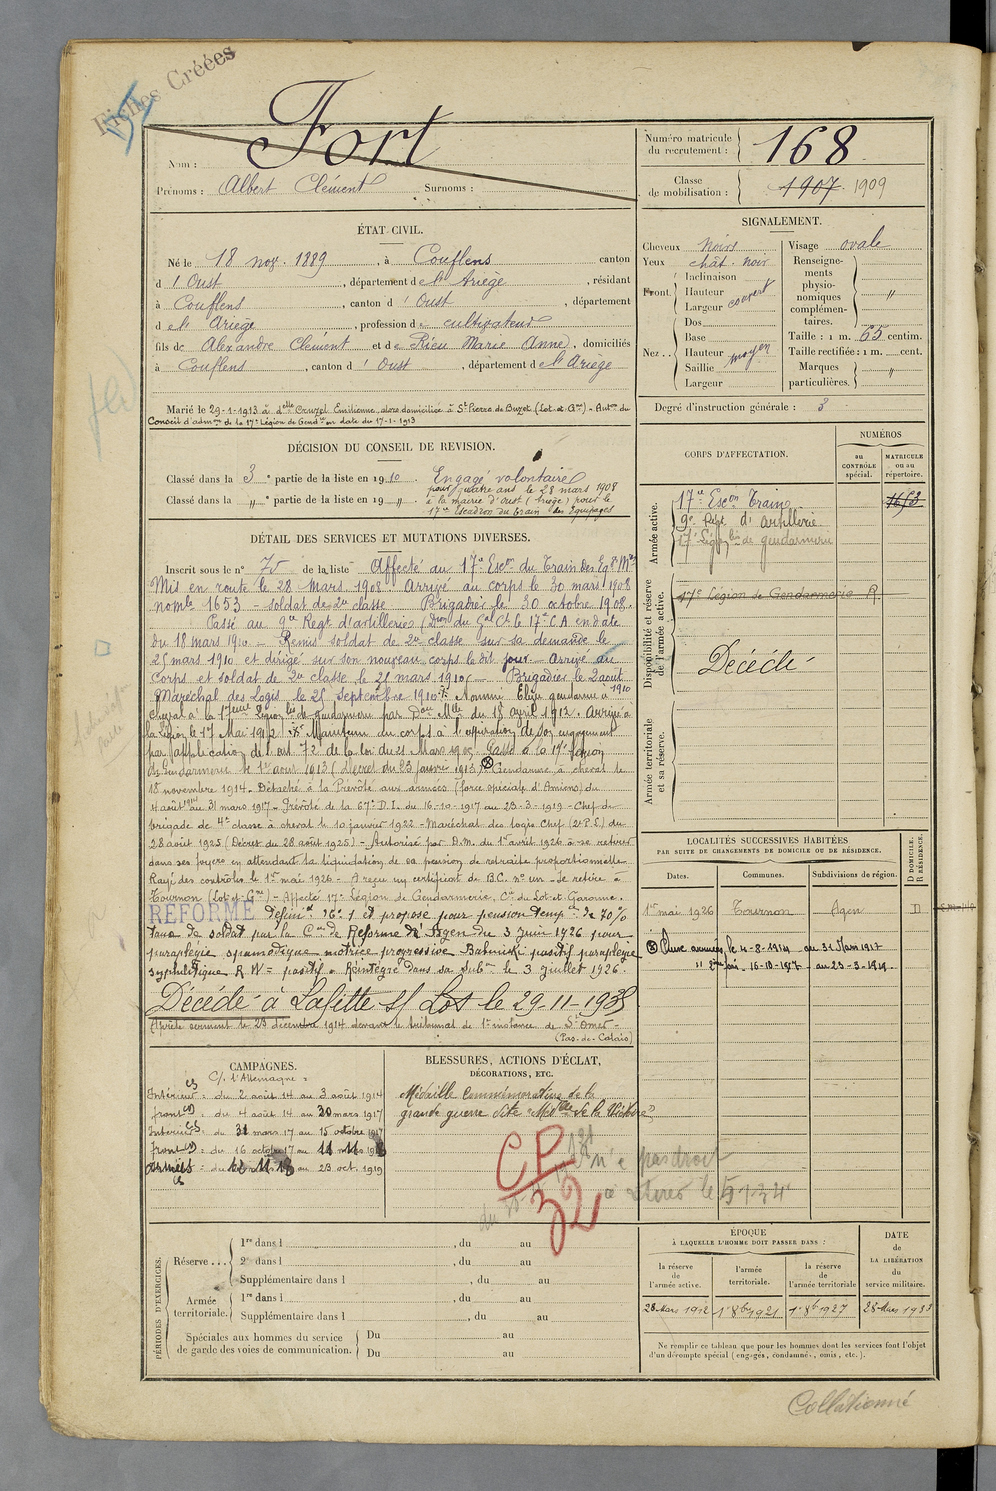 Fiches Créées
Fort
Nom :
Prénoms : Albert Clément Surnoms :
Numéro matricule du recrutement : 168
Classe de mobilisation : 1907 1909
ÉTAT CIVIL.
Né le 18 nov. 1889, à Couflens canton
d'Oust, département de l'Ariège, résidant
à Couflens, canton d'Oust, département
de l'Ariège, profession de cultivateur
fils de Alexandre Clément et de Rieu Marie Anne, domiciliés
à Couflens, canton d'Oust, département de l'Ariège
Marié le 29-1-1913 à delle Cruzel Emilienne, alors domiciliée à St Pierre de Buzet (Lot-et-Gne) - Auton du
Conseil d'admon de la 17e Légion de Gendie en date du 17-1-1913
SIGNALEMENT.
Cheveux noirs
Yeux chât. noir
Front. Inclinaison
Hauteur
Largeur couvert
Nez .. Dos
Base
Hauteur moyen
Saillie
Largeur
Visage ovale
Renseignements physionomiques complémentaires. "
Taille : 1 m. 65 centim.
Taille rectifiée : 1 m. cent.
Marques particulières. "
Degré d'instruction générale : 3
DÉCISION DU CONSEIL DE REVISION.
Classé dans la 3e partie de la liste en 1910. Engagé volontaire
pour quatre ans le 28 mars 1908
Classé dans la " e partie de la liste en 19 ". à la mairie d'Oust (Ariège) pour le
17me Escadron du train des Equipages
DÉTAIL DES SERVICES ET MUTATIONS DIVERSES.
Inscrit sous le n° 75 de la liste Affecté au 17e Escon du Train des Eqs Mres
Mis en route le 28 Mars 1908. Arrivé au corps le 30 mars 1908
nomle 1653 - soldat de 2e classe Brigadier le 30 octobre 1908.
Passé au 9me Regt d'artillerie (Don du Gal Ct le 17e C.A en date
du 18 mars 1910 - Remis soldat de 2e classe sur sa demande le
25 mars 1910 et dirigé sur son nouveau corps le dit jour - Arrivé au
Corps et soldat de 2e classe le 25 mars 1910 Brigadier le 2 aout 1910
Maréchal des Logis le 25 septembre 1910 Nommé Elève gendarme à
cheval à la 17eme Légion bis de gendarmerie par Don Mlle du 18 avril 1912. Arrivé à
la Légion le 1er Mai 1912 Maintenu du corps à l'expiration de son engagement
par application de l'art. 72 de la loi du 21 Mars 1905. Passé à la 17e Légion
de Gendarmerie le 1er aout 1913 (Décret du 23 janvier 1913 ⊗ Gendarme à cheval le
18 novembre 1914 - Détaché à la Prévôté aux armées (force spéciale d'Amiens) du
4 août 1914 au 31 mars 1917 - Prévôté de la 67e D.I. du 16-10-1917 au 23-3-1919 - Chef de
brigade de 4e classe à cheval le 10 janvier 1922 - Maréchal des logis Chef (2e P.S.) du
28 août 1925 (Décret du 28 août 1925) - Autorisé par D.M. du 1er avril 1926 à se retirer
dans ses foyers en attendant la liquidation de sa pension de retraite proportionnelle
Rayé des contrôles le 1er mai 1926 - A reçu un certificat de B.C. n° un - Se retire à
Tournon (Lot-et-Gne) - Affecté 17e Légion de Gendarmerie, Cie du Lot-et-Garonne.
REFORMÉ Défint N° 1 et proposé pour pension tempre de 70 %
taux de soldat par la Con de Réforme d'Agen du 3 juin 1926 pour
paraplégie spasmodique motrice progressive Babinski positif paraplégie
syphilitique R W = positif - Réintégré dans sa Subon le 3 juillet 1926.
Décédé à Lafitte s/ Lot le 29-11-1938
(Prête serment le 23 décembre 1914 devant le tribunal de 1re instance de St Omer -
(Pas-de-Calais)
CORPS D'AFFECTATION.
NUMÉROS
au CONTRÔLE spécial.
MATRICULE ou au répertoire.
Armée active.
17e Escon Train 1653
9e Regt d'artillerie
17e Légion bis de gendarmerie
Disponibilité et réserve de l'armée active.
17e Légion de Gendarmerie - R.
Décédé -
Armée territoriale et sa réserve.
LOCALITÉS SUCCESSIVES HABITÉES
PAR SUITE DE CHANGEMENTS DE DOMICILE OU DE RÉSIDENCE.
Dates. Communes. Subdivisions de région. D DOMICILE. R RÉSIDENCE.
1er mai 1926 Tournon Agen D
⊗ aux armées, le 4-8-1914 au 31 Mars 1917
" 2me fois. 16-10-1917 - au 23-3-1919.
CAMPAGNES.
C/. l'Allemagne :
Intérieur CS : du 2 août 14 au 3 août 1914
front CD : du 4 août 14 au 30 mars 1917
Intérieur CS : du 31 mars 17 au 15 octobre 1917
front CD : du 16 octobre 17 au 11
Armées : du 12 au 23 oct. 1919
CS
BLESSURES, ACTIONS D'ÉCLAT,
DÉCORATIONS, ETC.
Médaille Commémorative de la
grande guerre dite "Médlle de la Victoire"
CP
32
n'a pas droit
PÉRIODES D'EXERCICES.
Réserve ... 1re dans l , du au
2e dans l , du au
Supplémentaire dans l , du au
Armée territoriale. 1re dans l , du au
Supplémentaire dans l , du au
Spéciales aux hommes du service de garde des voies de communication. Du au
Du au
ÉPOQUE
À LAQUELLE L'HOMME DOIT PASSER DANS :
la réserve de l'armée active.
l'armée territoriale.
la réserve de l'armée territoriale
DATE de LA LIBÉRATION du service militaire.
28 Mars 1912 1er 8bre 1921 1er 8bre 1927 28 Mars 1933
Ne remplir ce tableau que pour les hommes dont les services font l'objet
d'un décompte spécial (engagés, condamnés, omis, etc.).
Collationné